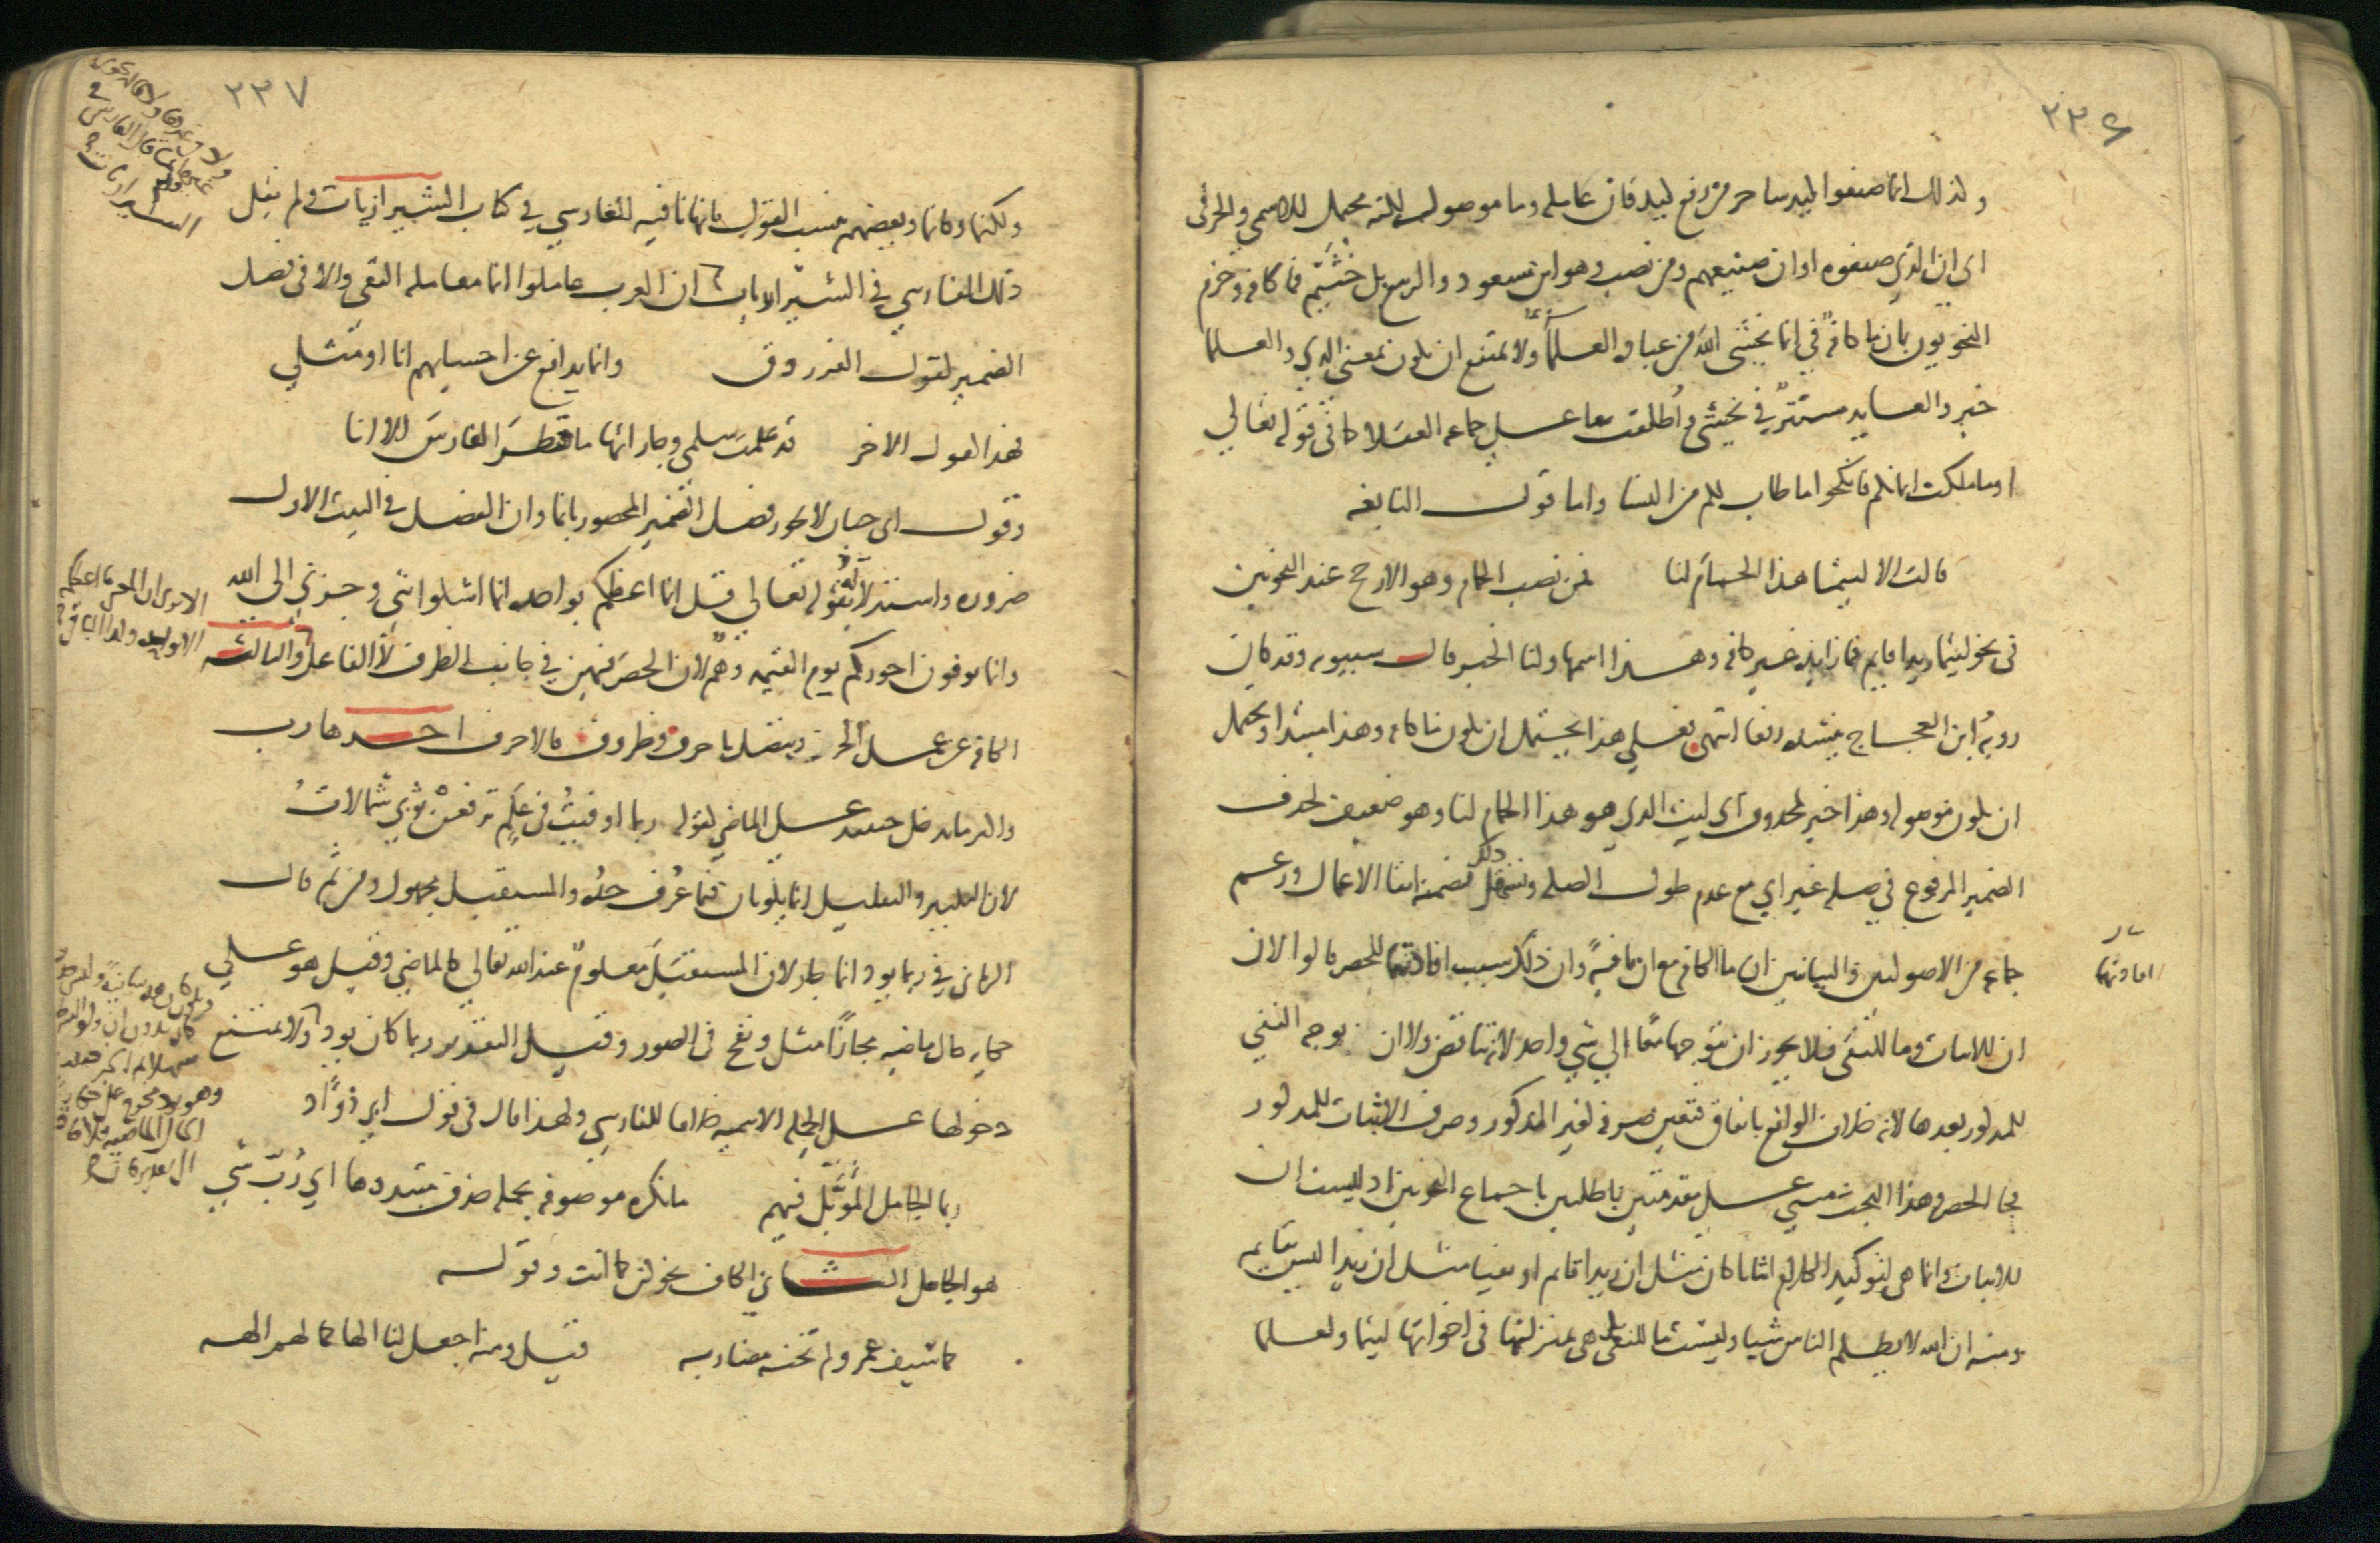 ٢٣٦
وكذلك انما صنعوا كيد ساحر من رفع كيد فان عامله وما موصول لكنه محتمل للاسمي والحرفي
اي ان الذي صنعوه او ان صنيعهم ومن نصب وهو ابن مسعود والربيع بن خثيم فما كافة وجزم
النحويون بان ما كافة في انما يخشى الله من عباده العلماء ولا يمتنع ان يكون بمعنى الذي والعلماء
خبر والعايد مستتر في يخشى واطلقت ما على جماعة العقلا كما في قوله تعالي
او ما ملكت ايمانكم فانكحوا ما طاب لكم من النسا واما قول النابغة
قالت الا ليتما هذا الحمام لنا فمن نصب الحمام وهو الارجح عند النحويين
في نحو ليتما زيدا قايم فما زايدة غير كافة وهذا اسمها ولنا الخبر قال سيبويه وقد كان
روبة ابن العجاج ينشده رفعا انتهى فعلى هذا يحتمل ان يكون ما كافة وهذا مبتدا ويحتمل
ان يكون موصولة وهذا خبر لمحذوف اي ليت الذي هو هذا الحمام لنا وهو ضعيف لحذف
الضمير المرفوع في صلة غير اي مع عدم طول الصلة وسهل ذلك تضمنه ابقا الاعمال وزعم
جماعة من الاصوليين والبيانيين ان ما الكافة مع ان نافية وان ذلك سبب افادتها للحصر قالوا لان
افادتها
ان للاثبات وما للنفي فلا يجوز ان يتوجها معا الي شي واحد لانه تناقض ولا ان توجه النفي
للمذكور بعدها لانه خلاف الواقع باتفاق فتعين صرفه لغير المذكور وصرف الاثبات للمذكور
فجا الحصر وهذا البحث مبني على مقدمتين باطلتين باجماع النحويين اذ ليست ان
للاثبات وانما هي لتوكيد الكلام اثباتا كان مثل ان زيدا قايم او نفيا مثل ان زيدا ليس بقايم
ومنه ان الله لا يظلم الناس شيا وليست ما للنفي بل هي بمنزلتها في اخواتها ليتما ولعلما
٢٣٧
ولكنما وكانما وبعضهم ينسب القول بانها نافية للفارسي في كتاب الشيرازيات ولم يقل
ذلك الفارسي في الشيرازيات ان العرب عاملوا انما معاملة النفي والا في فصل
الضمير لقول الفرزدق وانما يدافع عن احسابهم انا او مثلي
فهذا كقول الاخر قد علمت سلمى وجاراتها ما قطر الفارس الا انا
وقول ابي حيان لا يجوز فصل الضمير المحصور بانما وان الفصل في البيت الاول
ضرورة واستدلاله بقوله تعالي قل انما اعظكم بواحدة انما اشكوا بثي وحزني الى الله
وانما توفون اجوركم يوم القيمة وهم لان الحصر فيهن في جانب الظرف لا الفاعل والثالث
الكافة عن عمل الجر وتتصل باحرف وظروف فالاحرف احدها رب
واكثر ما تدخل حينيذ على الماضي كقوله ربما اوفيت في علم ترفعن ثوبي شمالات
لان التكثير والتقليل انما يكونان فيما عرف حده والمستقبل مجهول ومن ثم قال
الرماني في ربما يود انما جاز لان المستقبل معلوم عند الله تعالي كالماضي وقيل هو على
حكاية حال ماضية مجازا مثل ونفخ في الصور وقيل التقدير ربما كان يود ولا يمتنع
دخولها على الجملة الاسمية خلافا للفارسي ولهذا قال في قول ابي دؤاد
ربما الجامل المؤبل فيهم ما نكرة موصوفة بجملة حذف مبتدوها اي رب شي
هو الجامل الثاني الكاف نحو كن كما انت وقوله
كما سيف عمرو لم تخنه مضاربه قيل ومنه اجعل لنا الها كما لهم الهة